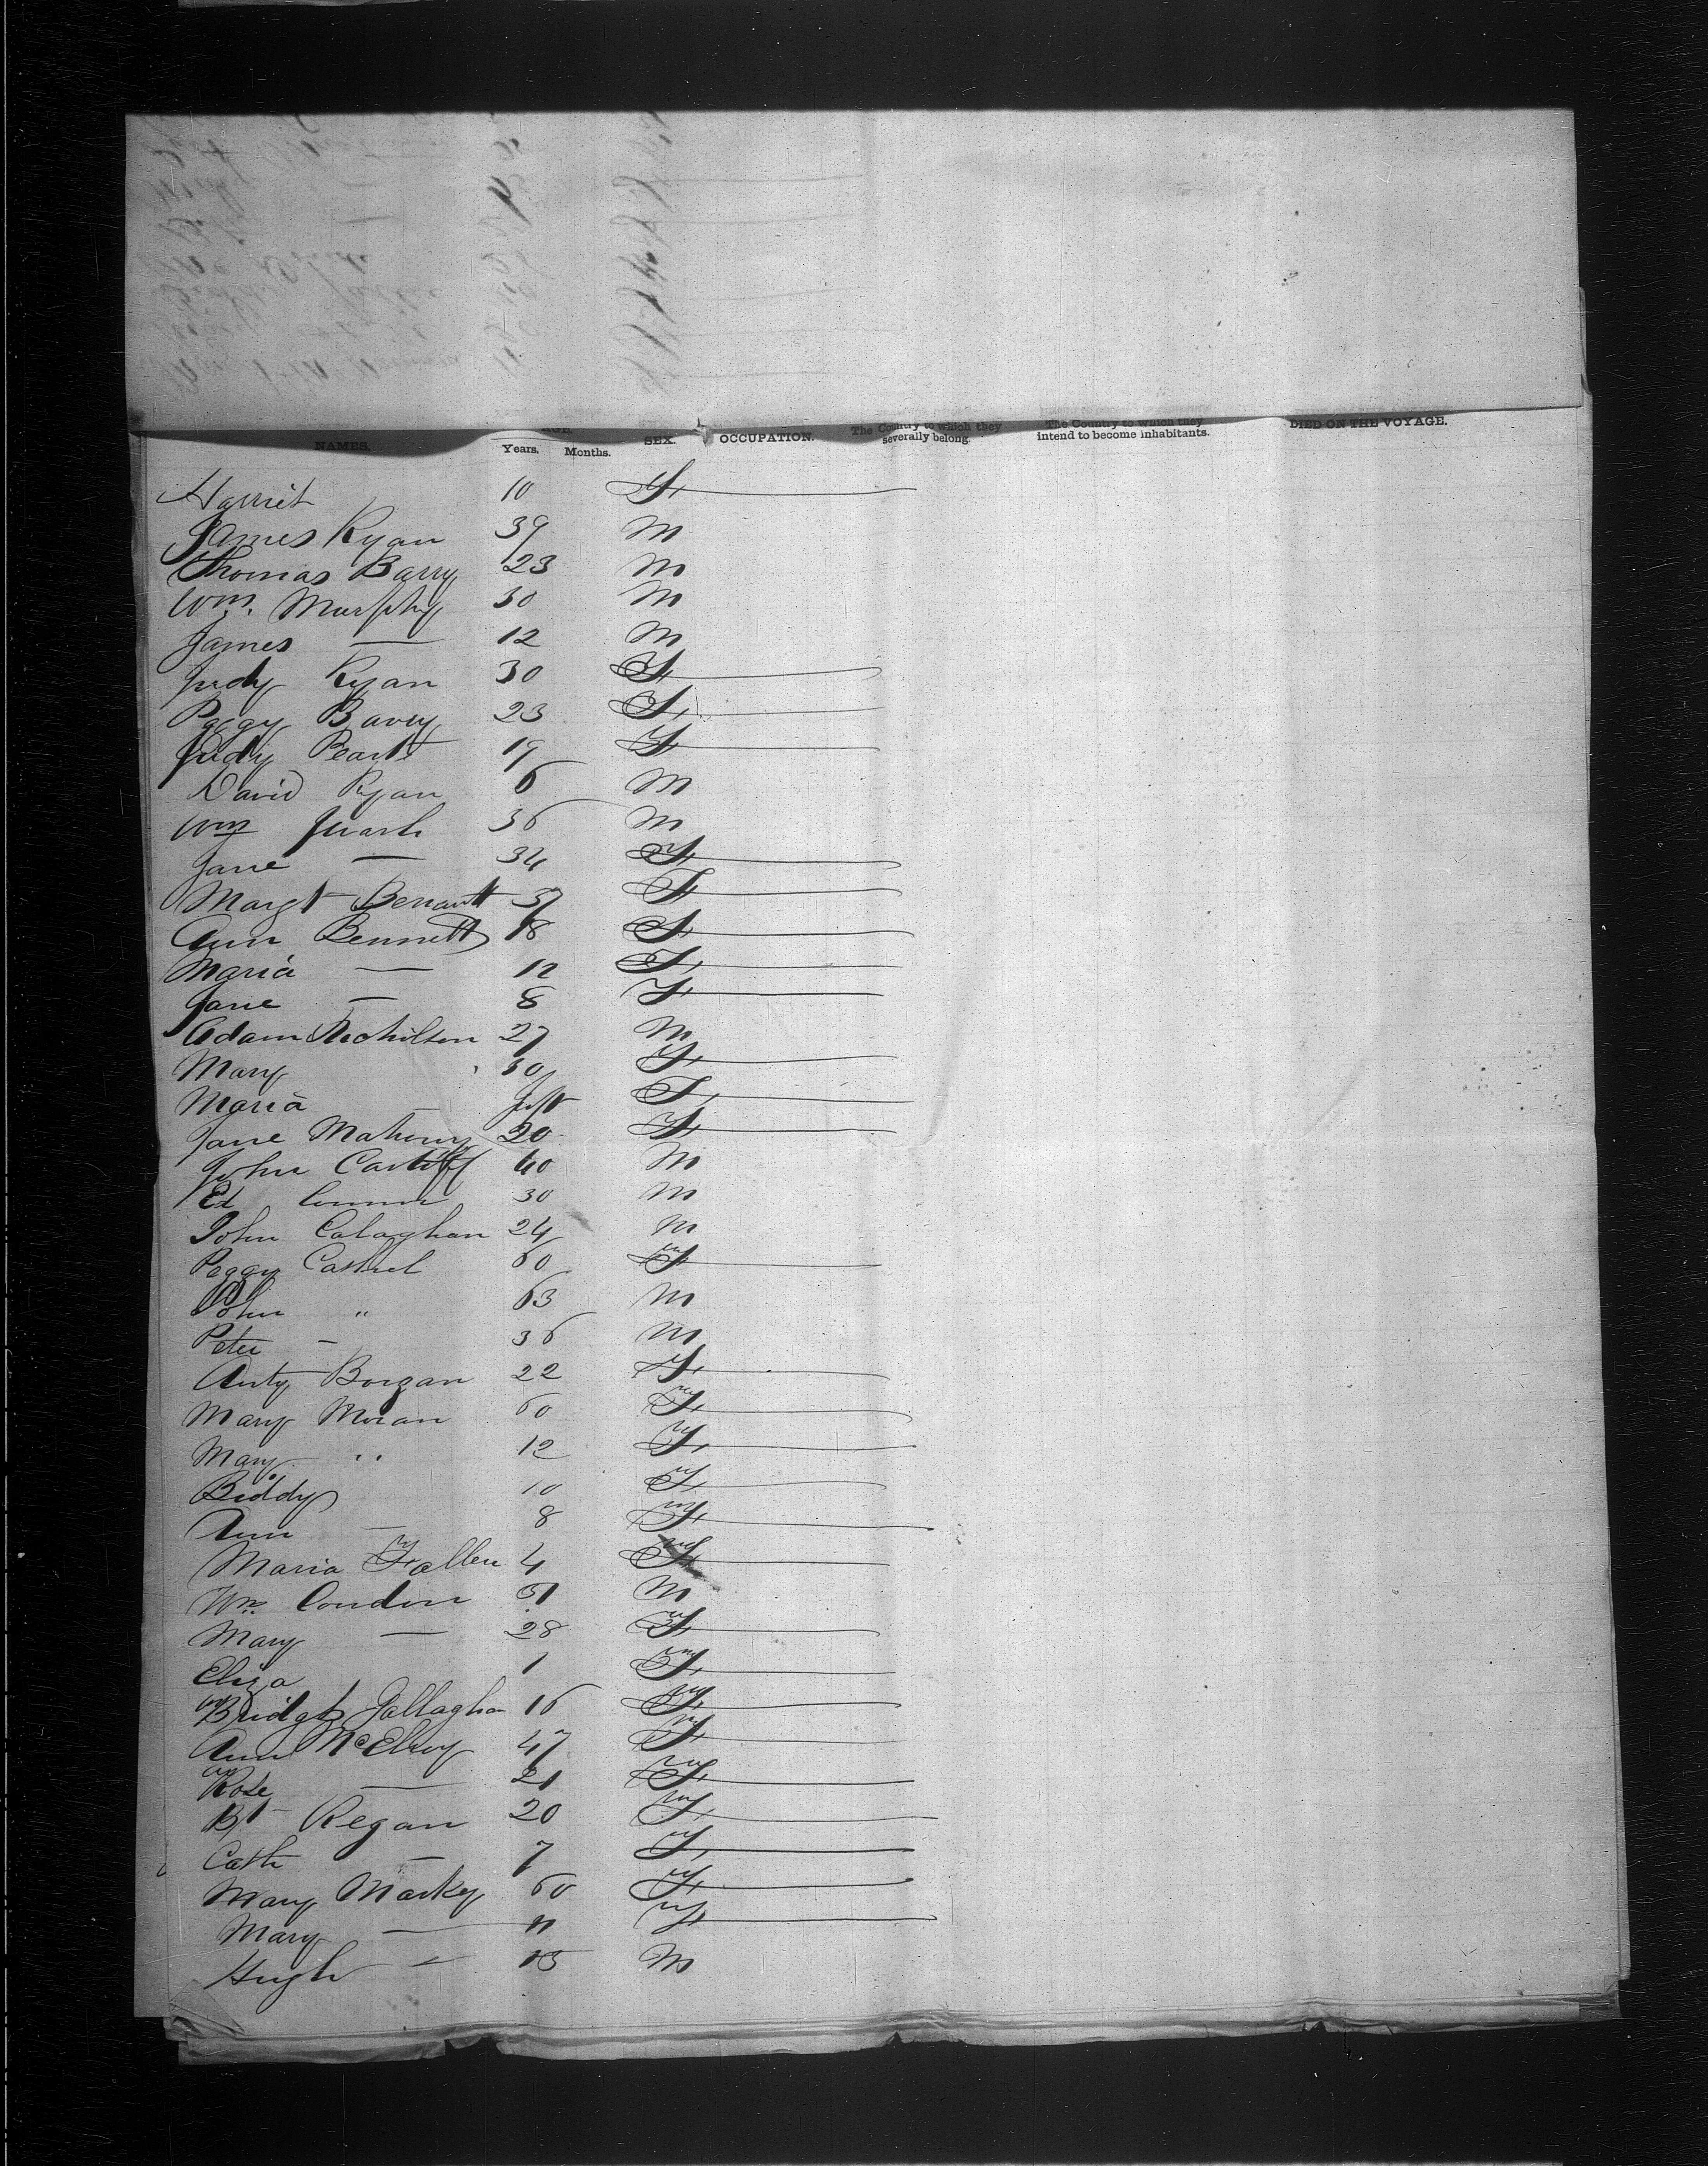 NAMES. AGE. Years. Months. SEX. OCCUPATION. The Country to which they severally belong. The Country to which they intend to become inhabitants. DIED ON THE VOYAGE.
Harriet 10 F
James Ryan 39 M
Thomas Barry 23 M
Wm. Murphy 30 M
James — 12 M
Judy Ryan 30 F
Peggy Barry 23 F
Judy 19 F
David Ryan 6 M
Wm 36 M
Jane — 34 F
Margt 37 F
Ann Bennett 18 F
Maria — 12 F
Jane — 8 F
Adam Nicholson 27 M
Mary 30 F
Maria — Inft F
Jane Mahony 20 F
John 40 M
Ed 30 M
John Calaghan 24 M
Peggy 60 F
John " 63 M
Peter — 36 M
Anty 22 F
Mary Moran 60 F
Mary " 12 F
Biddy 10 F
Ann — 8 F
Maria Fallen 4 F
Wm Condon 31 M
Mary — 28 F
Eliza 1 F
Bridgt Gallaghan 16 F
Ann McElroy 47 F
Rose — 21 F
Bt Regan 20 F
Cath — 7 F
Mary Markey 60 F
Mary — 11 F
Hugh — 15 M